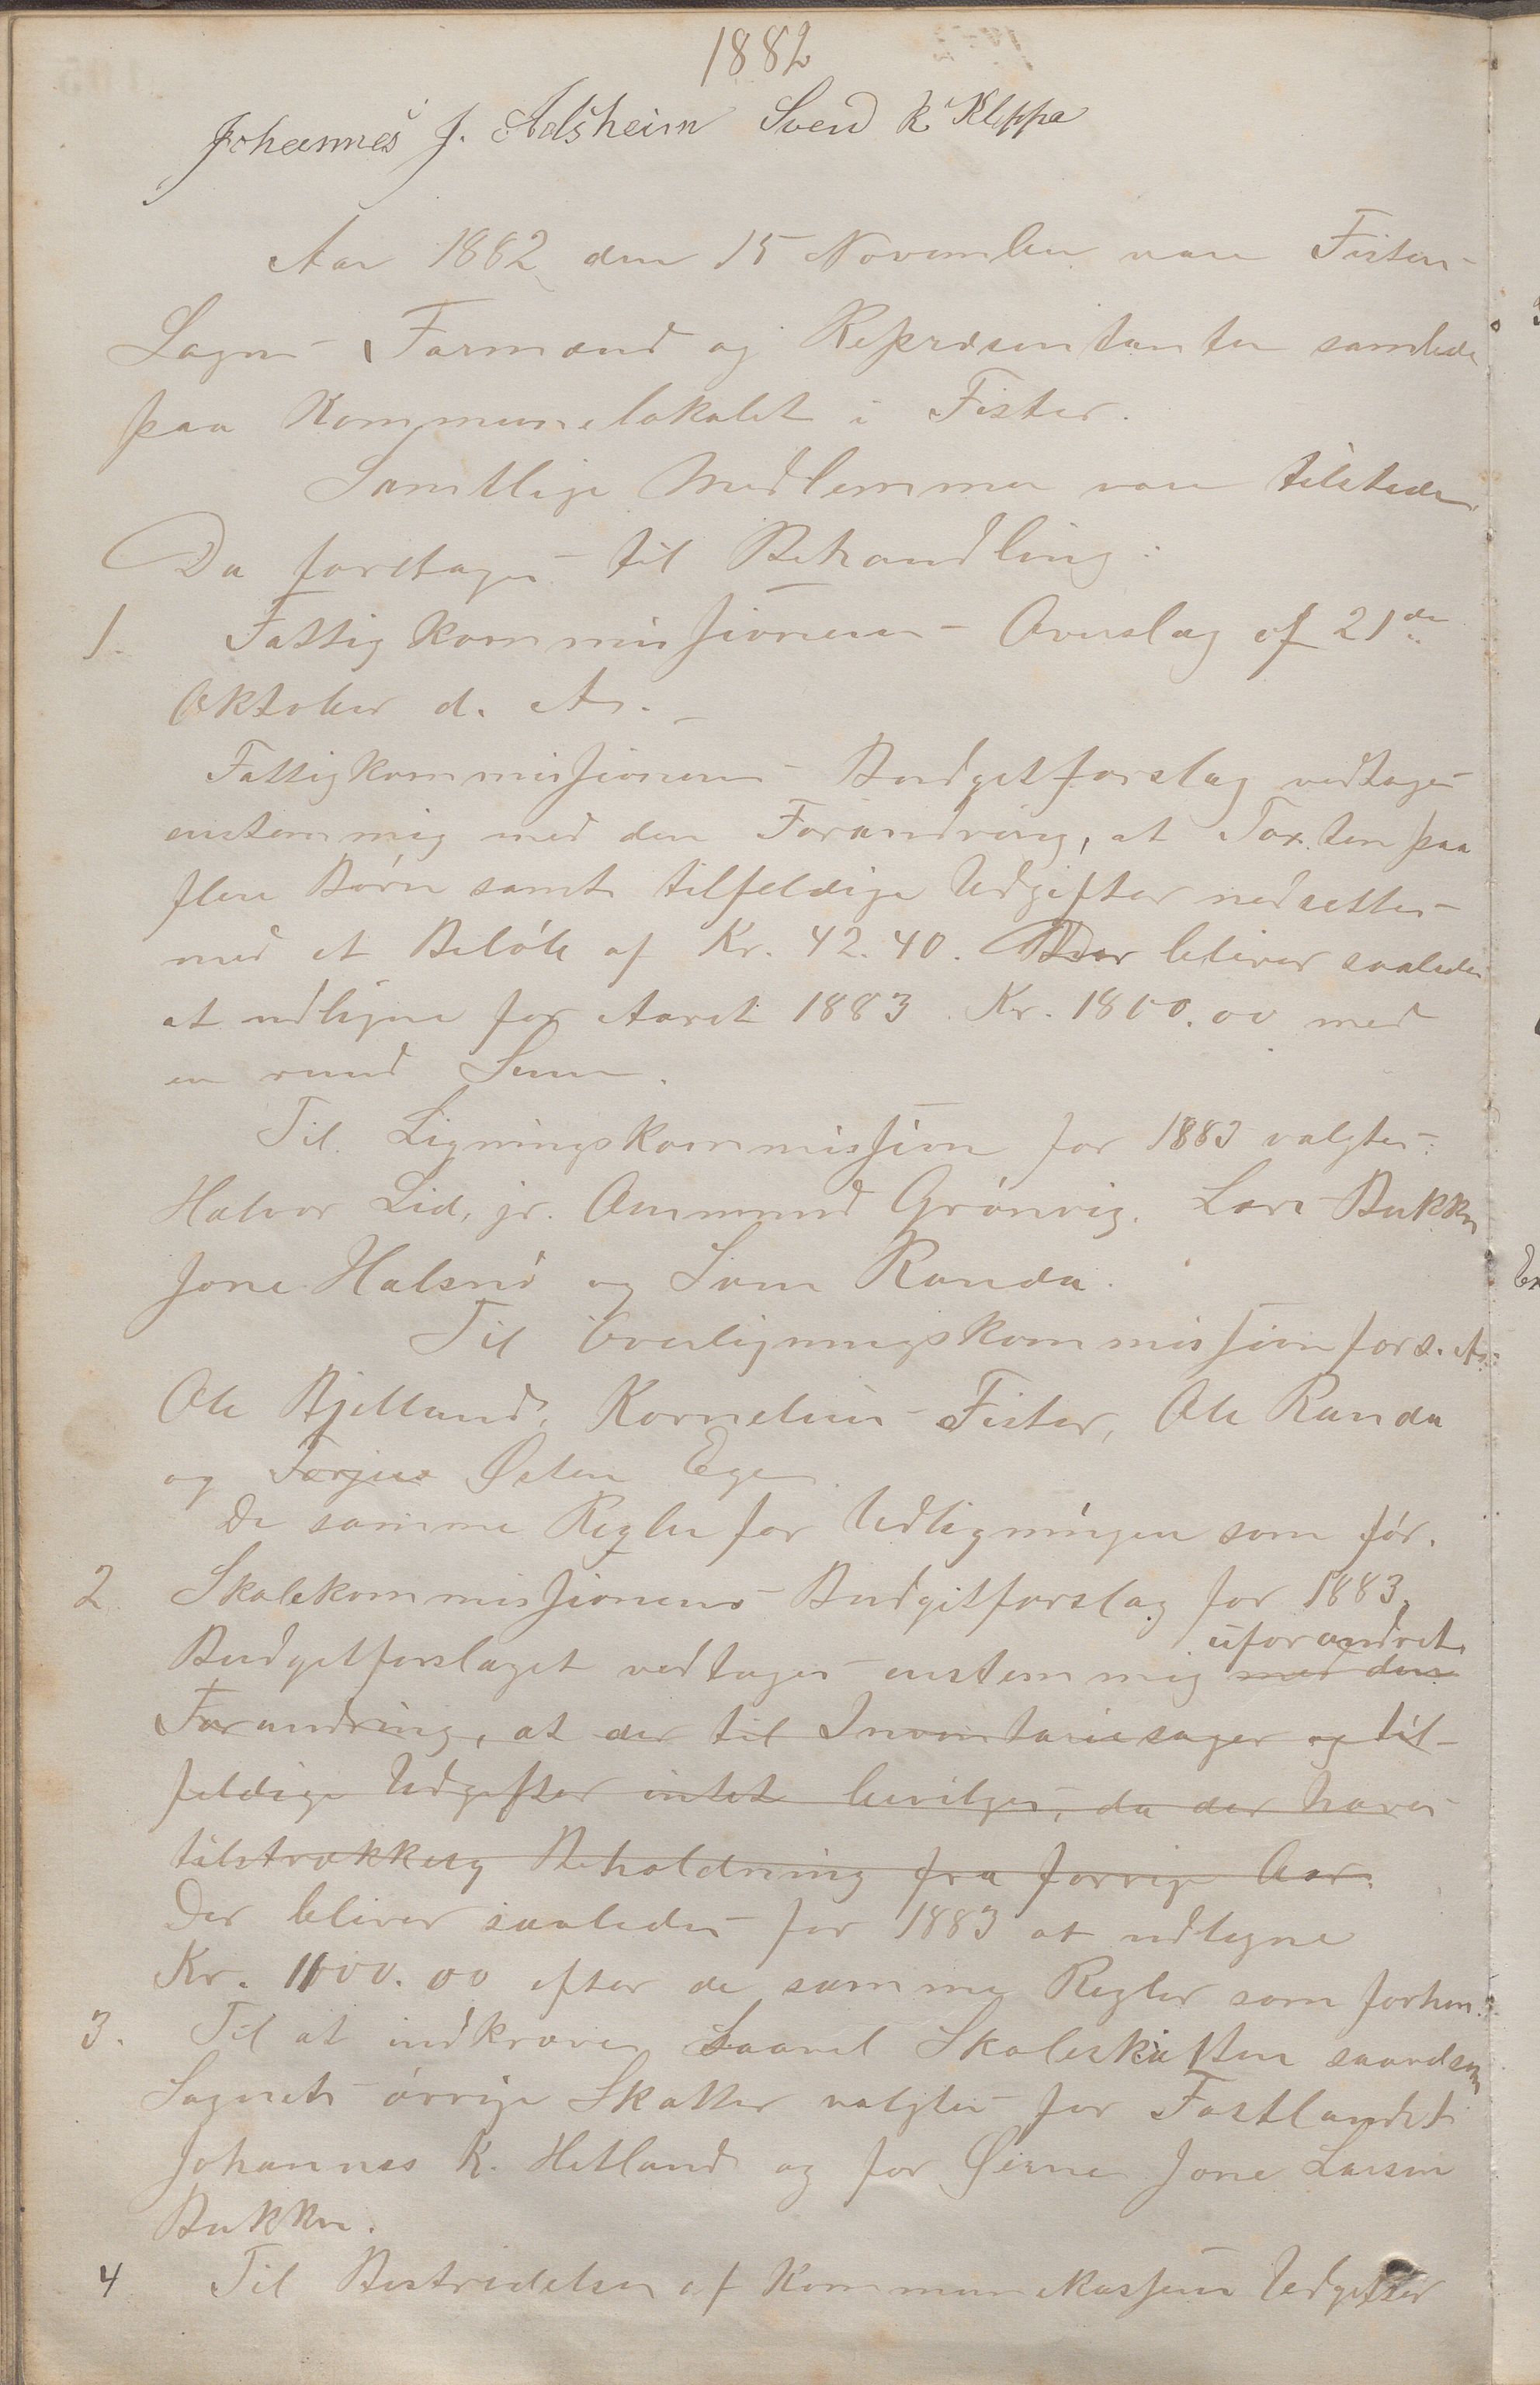 1882
Johannes J. Adsheim Svend K Kleppa
Aar 1882 den 15 November vare Fister
Sogns Formænd og Repræsentanter samlede
paa Kommunelokalet i Fister.
Samtlige Medlemmer vare tilstede.
Da foretages til Behandling:
1. Fattigkommissionens Overslag af 21de
Oktober d. A.
Fattigkommissionens Budgetforslag vedtages
enstemmig med den Forandring, at Taxten paa
flere Børn samt tilfeldige Udgifter nedsettes
med et Beløb af Kr. 42.40. Der bliver saaledes
at udligne for Aaret 1883 Kr. 1800.00 med
en rund Sum.
Til Ligningskommission for 1883 valgtes:
Halvor Lid, jr. Ommund Grønvig. Lars Bukken
Jone Halsnø og Sven Randa.
Til Overligningskommission for s. A.:
Ole Bjelland, Kornelius Fister, Ole Randa
og Torjus Østen Ege
De samme Regler for Udligningen som før.
2. Skolekommissionens Budgetforslag for 1883.
uforandret
Budgetforslaget vedtages enstemmig med den
Forandring, at der til Inventariesager og til-
feldige Udgifter intet bevilges, da der haves
tilstrækkelig Beholdning fra forrige Aar.
Der bliver saaledes for 1883 at udligne
Kr. 1100.00 efter de samme Regler som forhen.
3. Til at indkræve saavel Skoleskatten saavelsom
Sognets øvrige Skatter valgtes for Fastlandet
Johannes K. Hetland og for Øerne Jone Larsen
Bukken.
4 Til Bestridelsen af Kommunekassens Udgifter